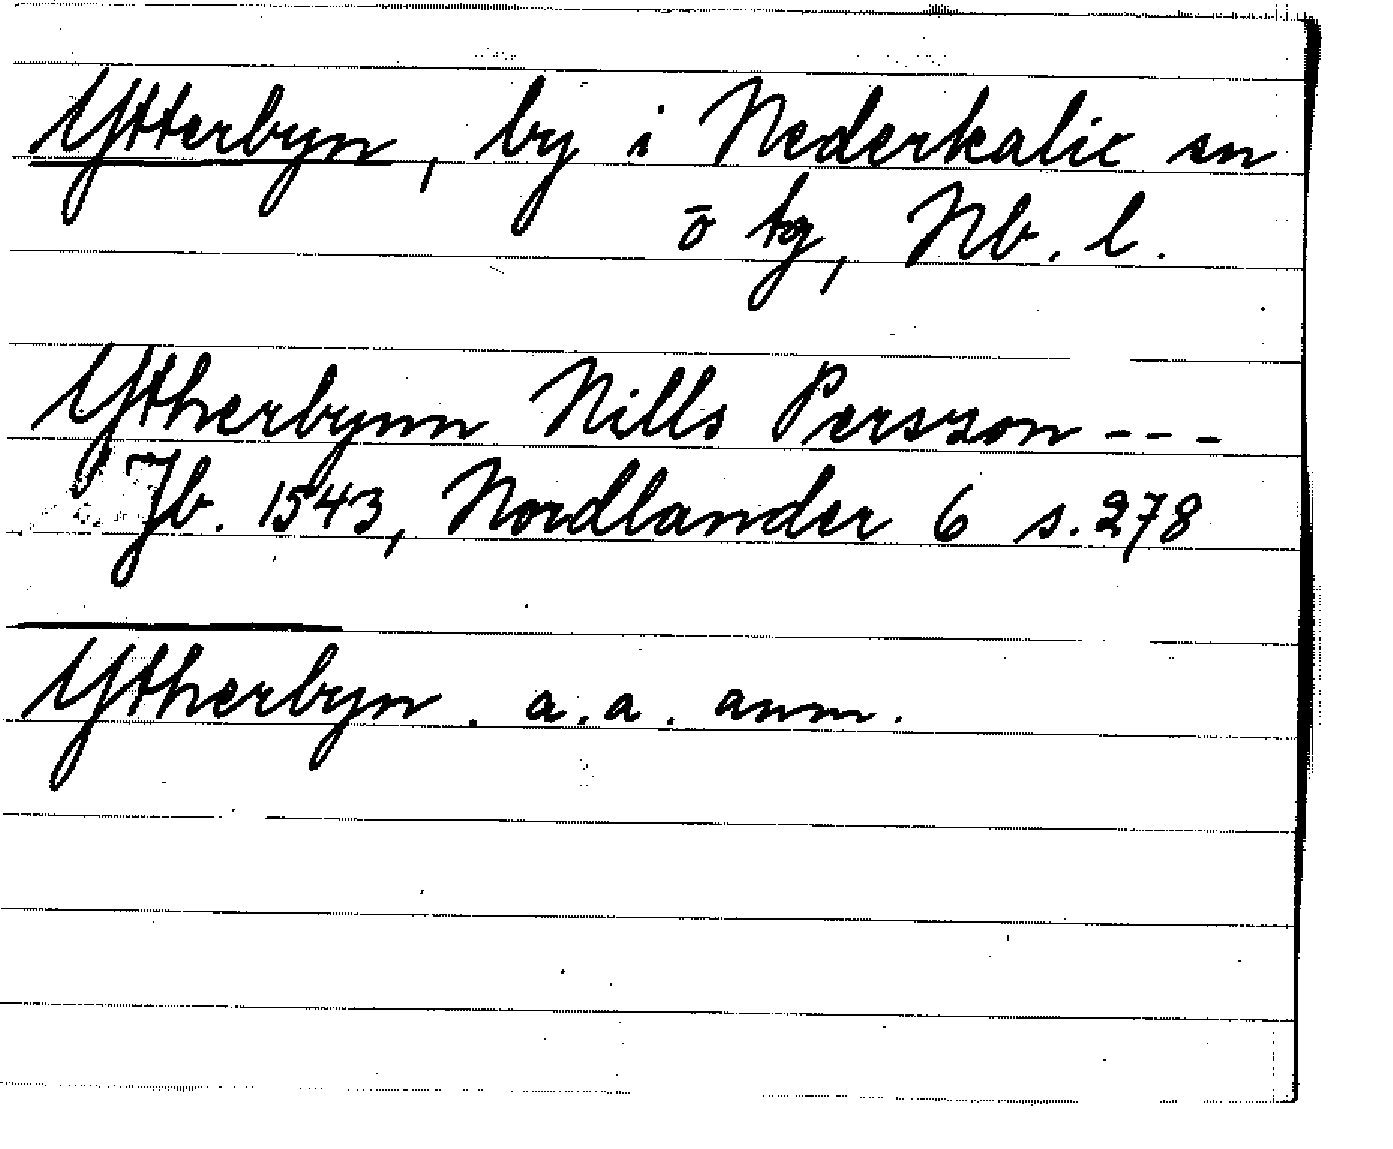 Ytterbyn, by i Nederkalix sn
ö tg, Nb. l.
Ytherbynn Nills Persszon ---
Jb. 1543, Nordlander 6 s. 278
Ytherbyn. a. a. anm.